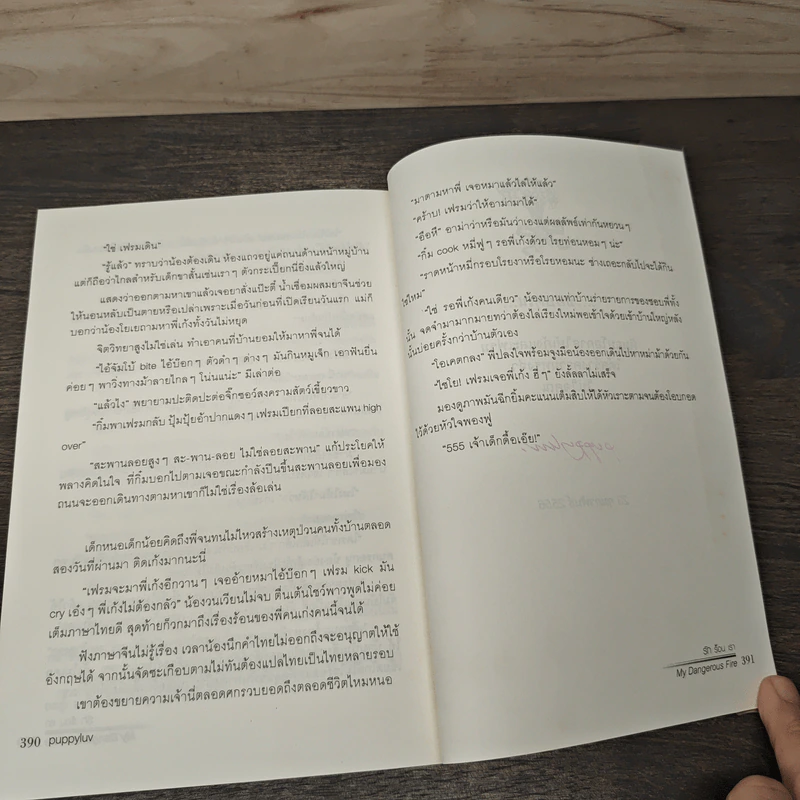 "ใช่ เฟรมเดิน"
"รู้แล้ว" ทราบว่าน้องต้องเดิน ห้องแถวอยู่แค่ถนนด้านหน้าหมู่บ้าน
แต่ก็ถือว่าไกลสำหรับเด็กขาสั้นเช่นเราๆ ตัวกระเปี๊ยกนี่ยิ่งแล้วใหญ่
แสดงว่าออกตามหาเขาแล้วเจอยาสั่งแป๊ะตี๋ น้ำเชื่อมผสมยาจีนช่วย
ให้นอนหลับเป็นตายหรือเปล่าเพราะเมื่อวันก่อนที่เปิดเรียนวันแรก แม่ก็
บอกว่าน้องโยเยถามหาพี่เก้งทั้งวันไม่หยุด
จิตวิทยาสูงไม่ใช่เล่น ทำเอาคนที่บ้านยอมให้มาหาพี่จนได้
"ไอ้จัมโบ้ bite ไอ้บ๊อกๆ ตัวดำๆ ด่างๆ มันกินหมูเจ็ก เอาฟันยื่น
ค่อยๆ พาวิ่งทางม้าลายไกลๆ โน่นแน่ะ" มีเล่าต่อ
"แล้วไง" พยายามปะติดปะต่อจิ๊กซอว์สงครามสัตว์เขี้ยวขาว
"กิ๊มพาเฟรมกลับ ปุ้มปุ้ยอ้าปากแดงๆ เฟรมเปียกที่ลอยสะแพน high
over"
"สะพานลอยสูงๆ สะ-พาน-ลอย ไม่ใช่ลอยสะพาน" แก้ประโยคให้
พลางคิดในใจ ที่กิ๊มบอกไปตามเจอขณะกำลังปีนขึ้นสะพานลอยเพื่อมอง
ถนนจะออกเดินทางตามหาเขาก็ไม่ใช่เรื่องล้อเล่น
เด็กหนอเด็กน้อยคิดถึงพี่จนทนไม่ไหวสร้างเหตุป่วนคนทั้งบ้านตลอด
สองวันที่ผ่านมา ติดเก้งมากนะนี่
"เฟรมจะมาพี่เก้งอีกวานๆ เจออ้ายหมาไอ้บ๊อกๆ เฟรม kick มัน
cry เอ๋งๆ พี่เก้งไม่ต้องกลัว" น้องวนเวียนไม่จบ ตื่นเต้นโชว์พาวพูดไม่ค่อย
เต็มภาษาไทยดี สุดท้ายก็วกมาถึงเรื่องร้อนของพี่คนเก่งคนนี้จนได้
ฟังภาษาจีนไม่รู้เรื่อง เวลาน้องนึกคำไทยไม่ออกถึงจะอนุญาตให้ใช้
อังกฤษได้ จากนั้นจัดซะเกือบตามไม่ทันต้องแปลไทยเป็นไทยหลายรอบ
เขาต้องขยายความเจ้านี่ตลอดศกรวบยอดถึงตลอดชีวิตไหมหนอ
390 puppyluv
"มาตามหาพี่ เจอหมาแล้วไล่ให้แล้ว"
"คร้าบ! เฟรมว่าให้อาม่ามาได้"
"อือหึ" อาม่าว่าหรือมันว่าเองแต่ผลลัพธ์เท่ากันหยวนๆ
"กิ๊ม cook หมี่ฟูๆ รอพี่เก้งด้วย โรยท่อนหอมๆ น่ะ"
"ราดหน้าหมี่กรอบโรยงาหรือโรยหอมนะ ช่างเถอะกลับไปจะได้กิน
ใช่ไหม"
"ใช่ รอพี่เก้งคนเดียว" น้องบานเท่าบ้านร่ายรายการของชอบพี่ทั้ง
นั้น จดจำมามากมายทว่าต้องไล่เรียงใหม่พอเข้าใจด้วยเข้าบ้านใหญ่หลัง
นั้นบ่อยครั้งกว่าบ้านตัวเอง
"โอเคตกลง" พี่ปลงใจพร้อมจูงมือน้องออกเดินไปหาหม่าม้าด้วยกัน
"ไชโย! เฟรมเจอพี่เก้ง ฮี่ๆ" ยังลั้ลลาไม่เสร็จ
มองดูภาพมันฉีกยิ้มคะแนนเต็มสิบให้ได้หัวเราะตามจนต้องโอบกอด
ไว้ด้วยหัวใจพองฟู
"555 เจ้าเด็กดื้อเอ๊ย!"
รัก ร้อน เรา
My Dangerous Fire 391